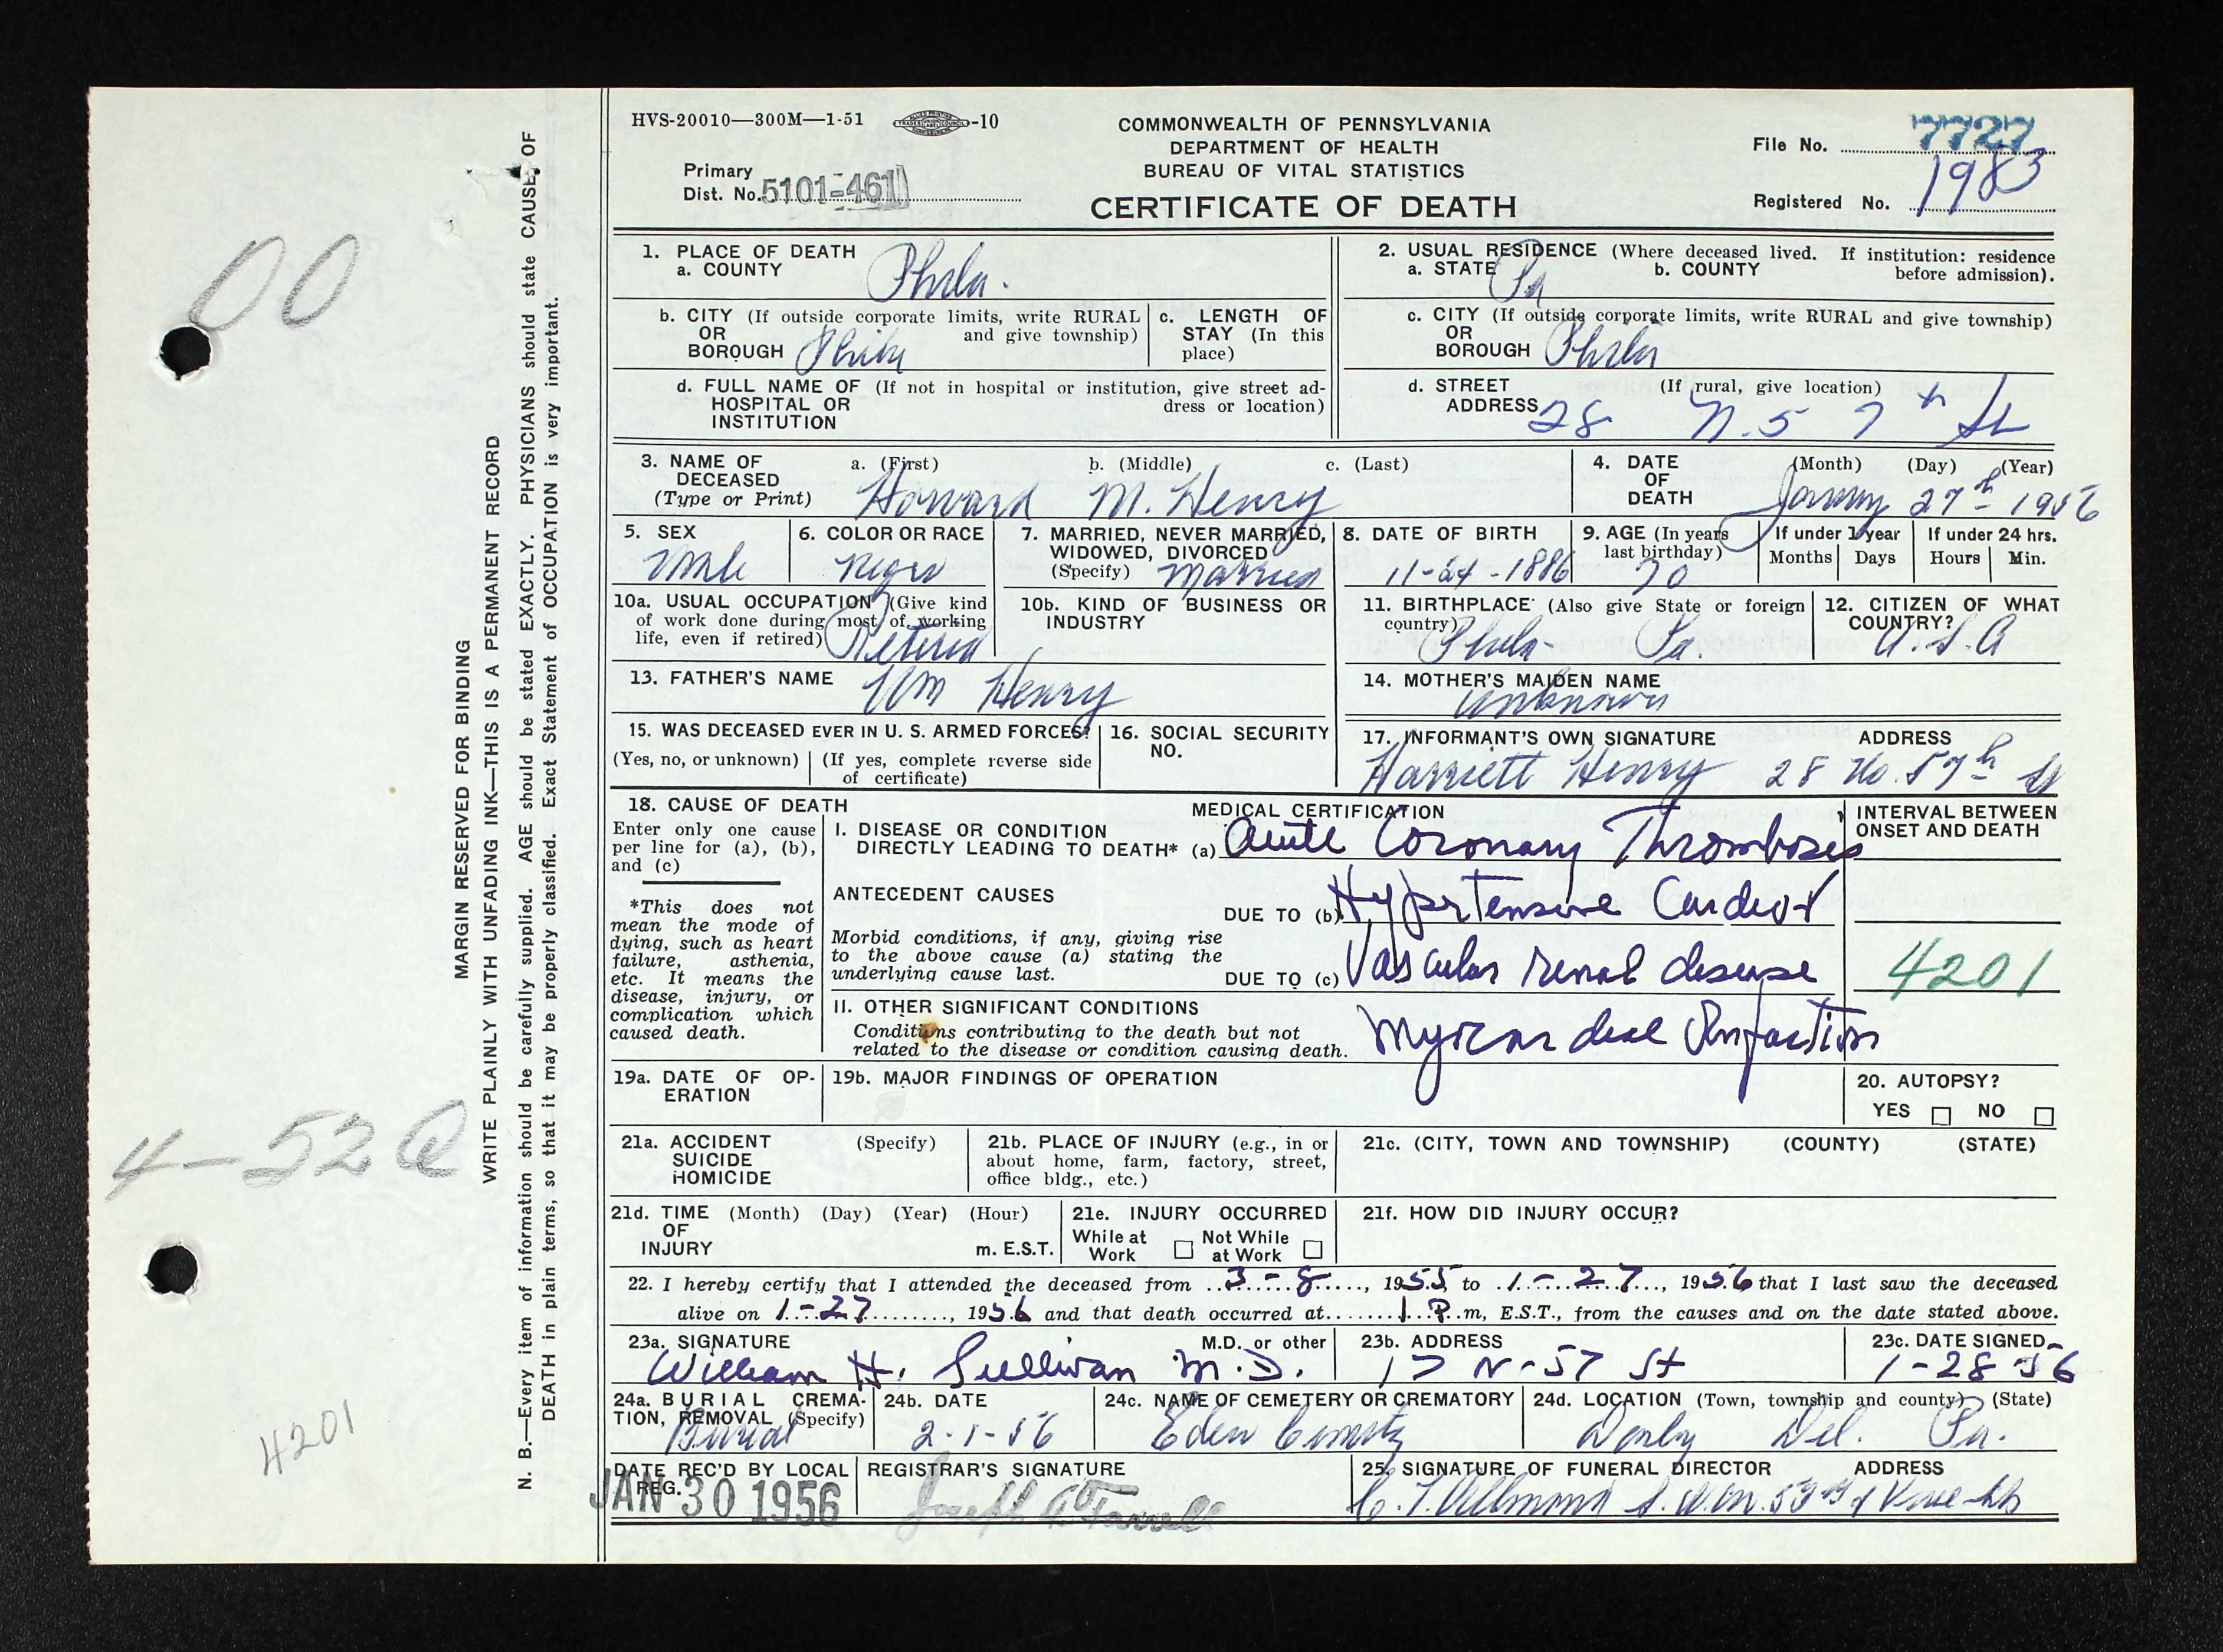 HVS-20010—300M—1-51 -10
COMMONWEALTH OF PENNSYLVANIA
DEPARTMENT OF HEALTH
BUREAU OF VITAL STATISTICS
CERTIFICATE OF DEATH
Primary
Dist. No. 5101-461
File No. 7727
Registered No. 1983
1. PLACE OF DEATH
a. COUNTY Phila.
b. CITY (If outside corporate limits, write RURAL
OR and give township)
BOROUGH Phila
c. LENGTH OF
STAY (In this
place)
d. FULL NAME OF (If not in hospital or institution, give street ad-
HOSPITAL OR dress or location)
INSTITUTION
2. USUAL RESIDENCE (Where deceased lived. If institution: residence
a. STATE Pa b. COUNTY before admission).
c. CITY (If outside corporate limits, write RURAL and give township)
OR
BOROUGH Phila
d. STREET (If rural, give location)
ADDRESS 28 N. 57th St
3. NAME OF a. (First) b. (Middle) c. (Last)
DECEASED
(Type or Print) Howard M. Henry
4. DATE (Month) (Day) (Year)
OF
DEATH January 27th 1956
5. SEX
Male
6. COLOR OR RACE
Negro
7. MARRIED, NEVER MARRIED,
WIDOWED, DIVORCED
(Specify) Married
8. DATE OF BIRTH
11-24-1886
9. AGE (In years
last birthday)
70
If under 1 year
Months Days
If under 24 hrs.
Hours Min.
10a. USUAL OCCUPATION (Give kind
of work done during most of working
life, even if retired) Retired
10b. KIND OF BUSINESS OR
INDUSTRY
11. BIRTHPLACE (Also give State or foreign
country)
Phila- Pa.
12. CITIZEN OF WHAT
COUNTRY?
U.S.A
13. FATHER'S NAME Wm Henry
14. MOTHER'S MAIDEN NAME
unknown
15. WAS DECEASED EVER IN U. S. ARMED FORCES?
(Yes, no, or unknown) (If yes, complete reverse side
of certificate)
16. SOCIAL SECURITY
NO.
17. INFORMANT'S OWN SIGNATURE ADDRESS
Harriett Henry 28 No. 57th St
18. CAUSE OF DEATH
Enter only one cause
per line for (a), (b),
and (c)
*This does not
mean the mode of
dying, such as heart
failure, asthenia,
etc. It means the
disease, injury, or
complication which
caused death.
MEDICAL CERTIFICATION
I. DISEASE OR CONDITION
DIRECTLY LEADING TO DEATH* (a) Acute Coronary Thrombosis
ANTECEDENT CAUSES
DUE TO (b) Hypertensive Cardio
Morbid conditions, if any, giving rise
to the above cause (a) stating the
underlying cause last.
DUE TO (c) Vascular renal disease
II. OTHER SIGNIFICANT CONDITIONS
Conditions contributing to the death but not
related to the disease or condition causing death.
Myocardial Infarction
INTERVAL BETWEEN
ONSET AND DEATH
4201
19a. DATE OF OP-
ERATION
19b. MAJOR FINDINGS OF OPERATION
20. AUTOPSY?
YES NO
21a. ACCIDENT (Specify)
SUICIDE
HOMICIDE
21b. PLACE OF INJURY (e.g., in or
about home, farm, factory, street,
office bldg., etc.)
21c. (CITY, TOWN AND TOWNSHIP) (COUNTY) (STATE)
21d. TIME (Month) (Day) (Year) (Hour)
OF
INJURY m. E.S.T.
21e. INJURY OCCURRED
While at Not While
Work at Work
21f. HOW DID INJURY OCCUR?
22. I hereby certify that I attended the deceased from 3-8, 1955, to 1-27, 1956 that I last saw the deceased
alive on 1-27, 1956 and that death occurred at 1 P.m, E.S.T., from the causes and on the date stated above.
23a. SIGNATURE M.D. or other
William H. Sullivan M.D.
23b. ADDRESS
17 N-57 St
23c. DATE SIGNED
1-28-56
24a. BURIAL CREMA-
TION, REMOVAL (Specify)
Burial
24b. DATE
2-1-56
24c. NAME OF CEMETERY OR CREMATORY
Eden Cemetry
24d. LOCATION (Town, township and county) (State)
Darby Del. Pa.
DATE REC'D BY LOCAL
REG.
JAN 30 1956
REGISTRAR'S SIGNATURE
Joseph A. Farrell
25. SIGNATURE OF FUNERAL DIRECTOR ADDRESS
53rd & Vine Sts
MARGIN RESERVED FOR BINDING
WRITE PLAINLY WITH UNFADING INK—THIS IS A PERMANENT RECORD
N. B.—Every item of information should be carefully supplied. AGE should be stated EXACTLY. PHYSICIANS should state CAUSE OF
DEATH in plain terms, so that it may be properly classified. Exact Statement of OCCUPATION is very important.
00
4-52
4201